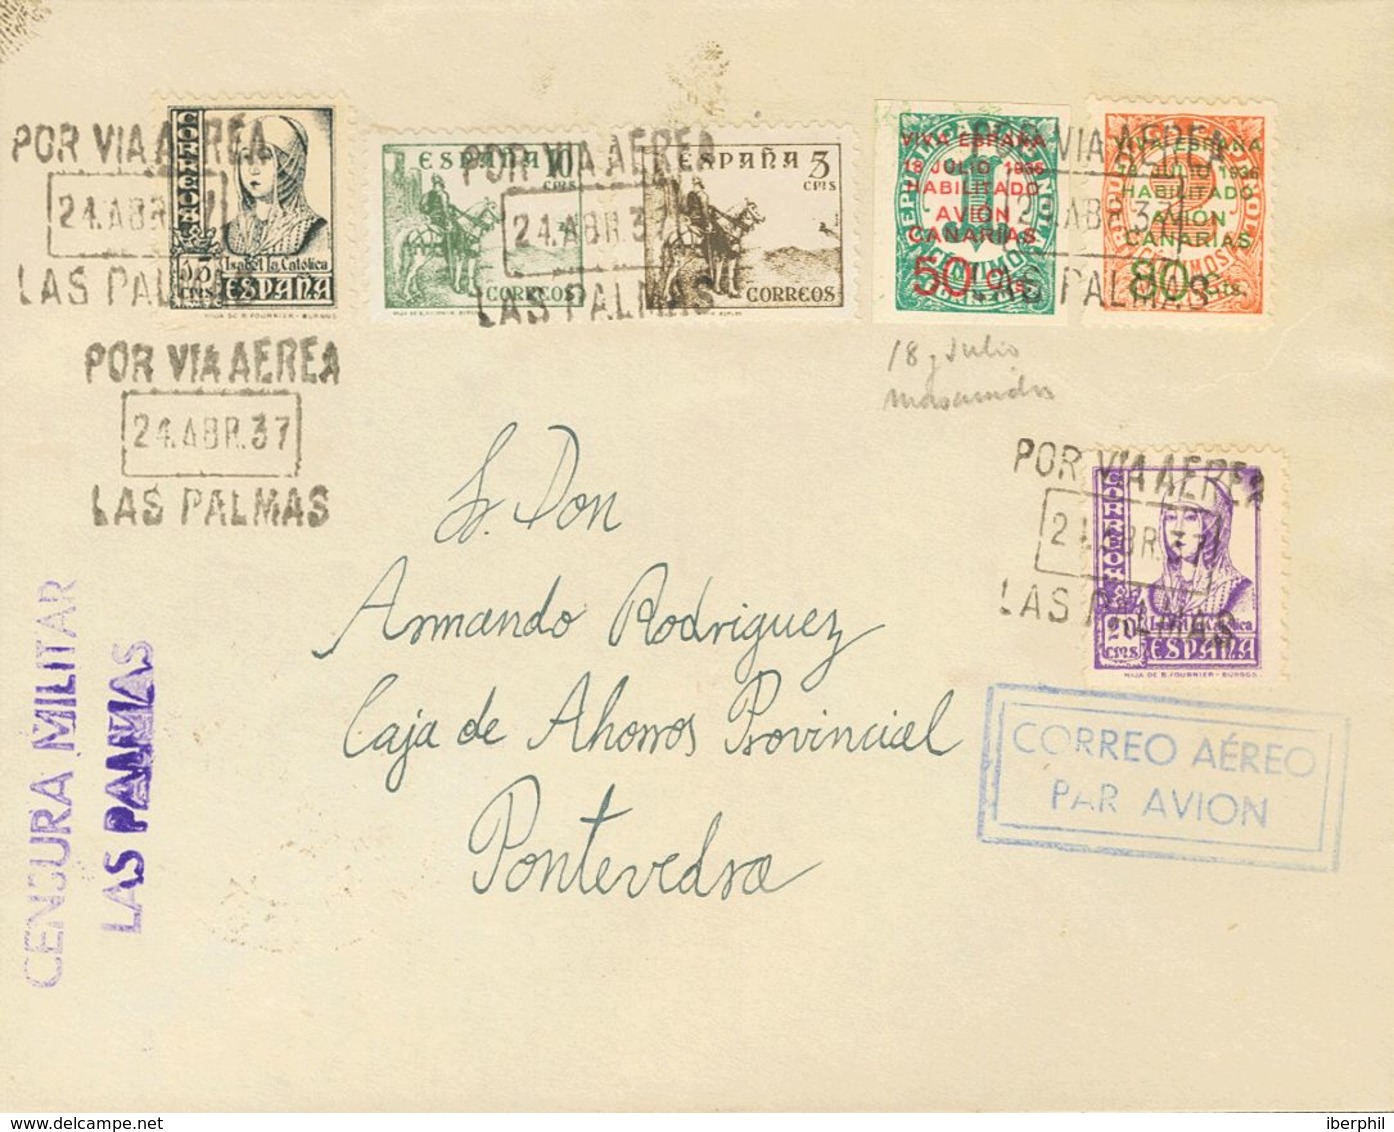 POR VIA AEREA
24.ABR.37
LAS PALMAS
CORREOS
15 CMS
Isabel la Católica
ESPAÑA
HIJA DE B. FOURNIER - BURGOS
ESPAÑA 10 CMS
CORREOS
POR VIA AEREA
24.ABR.37
LAS PALMAS
ESPAÑA 5 CMS
CORREOS
VIVA ESPAÑA
18 JULIO 1936
HABILITADO
AVIÓN
CANARIAS
50 Cts.
VIVA ESPAÑA
18 JULIO 1936
HABILITADO
AVIÓN
CANARIAS
80 Cts.
VIA AEREA
LAS PALMAS
POR VIA AEREA
24.ABR.37
LAS PALMAS
18, Julio
POR VIA AEREA
24.ABR.37
LAS PALMAS
CORREOS
20 CMS
Isabel la Católica
ESPAÑA
HIJA DE B. FOURNIER - BURGOS
Sr. Don
Armando Rodriguez
Caja de Ahorros Provincial
Pontevedra
CENSURA MILITAR
LAS PALMAS
CORREO AÉREO
PAR AVION
delcampe.net
iberphil